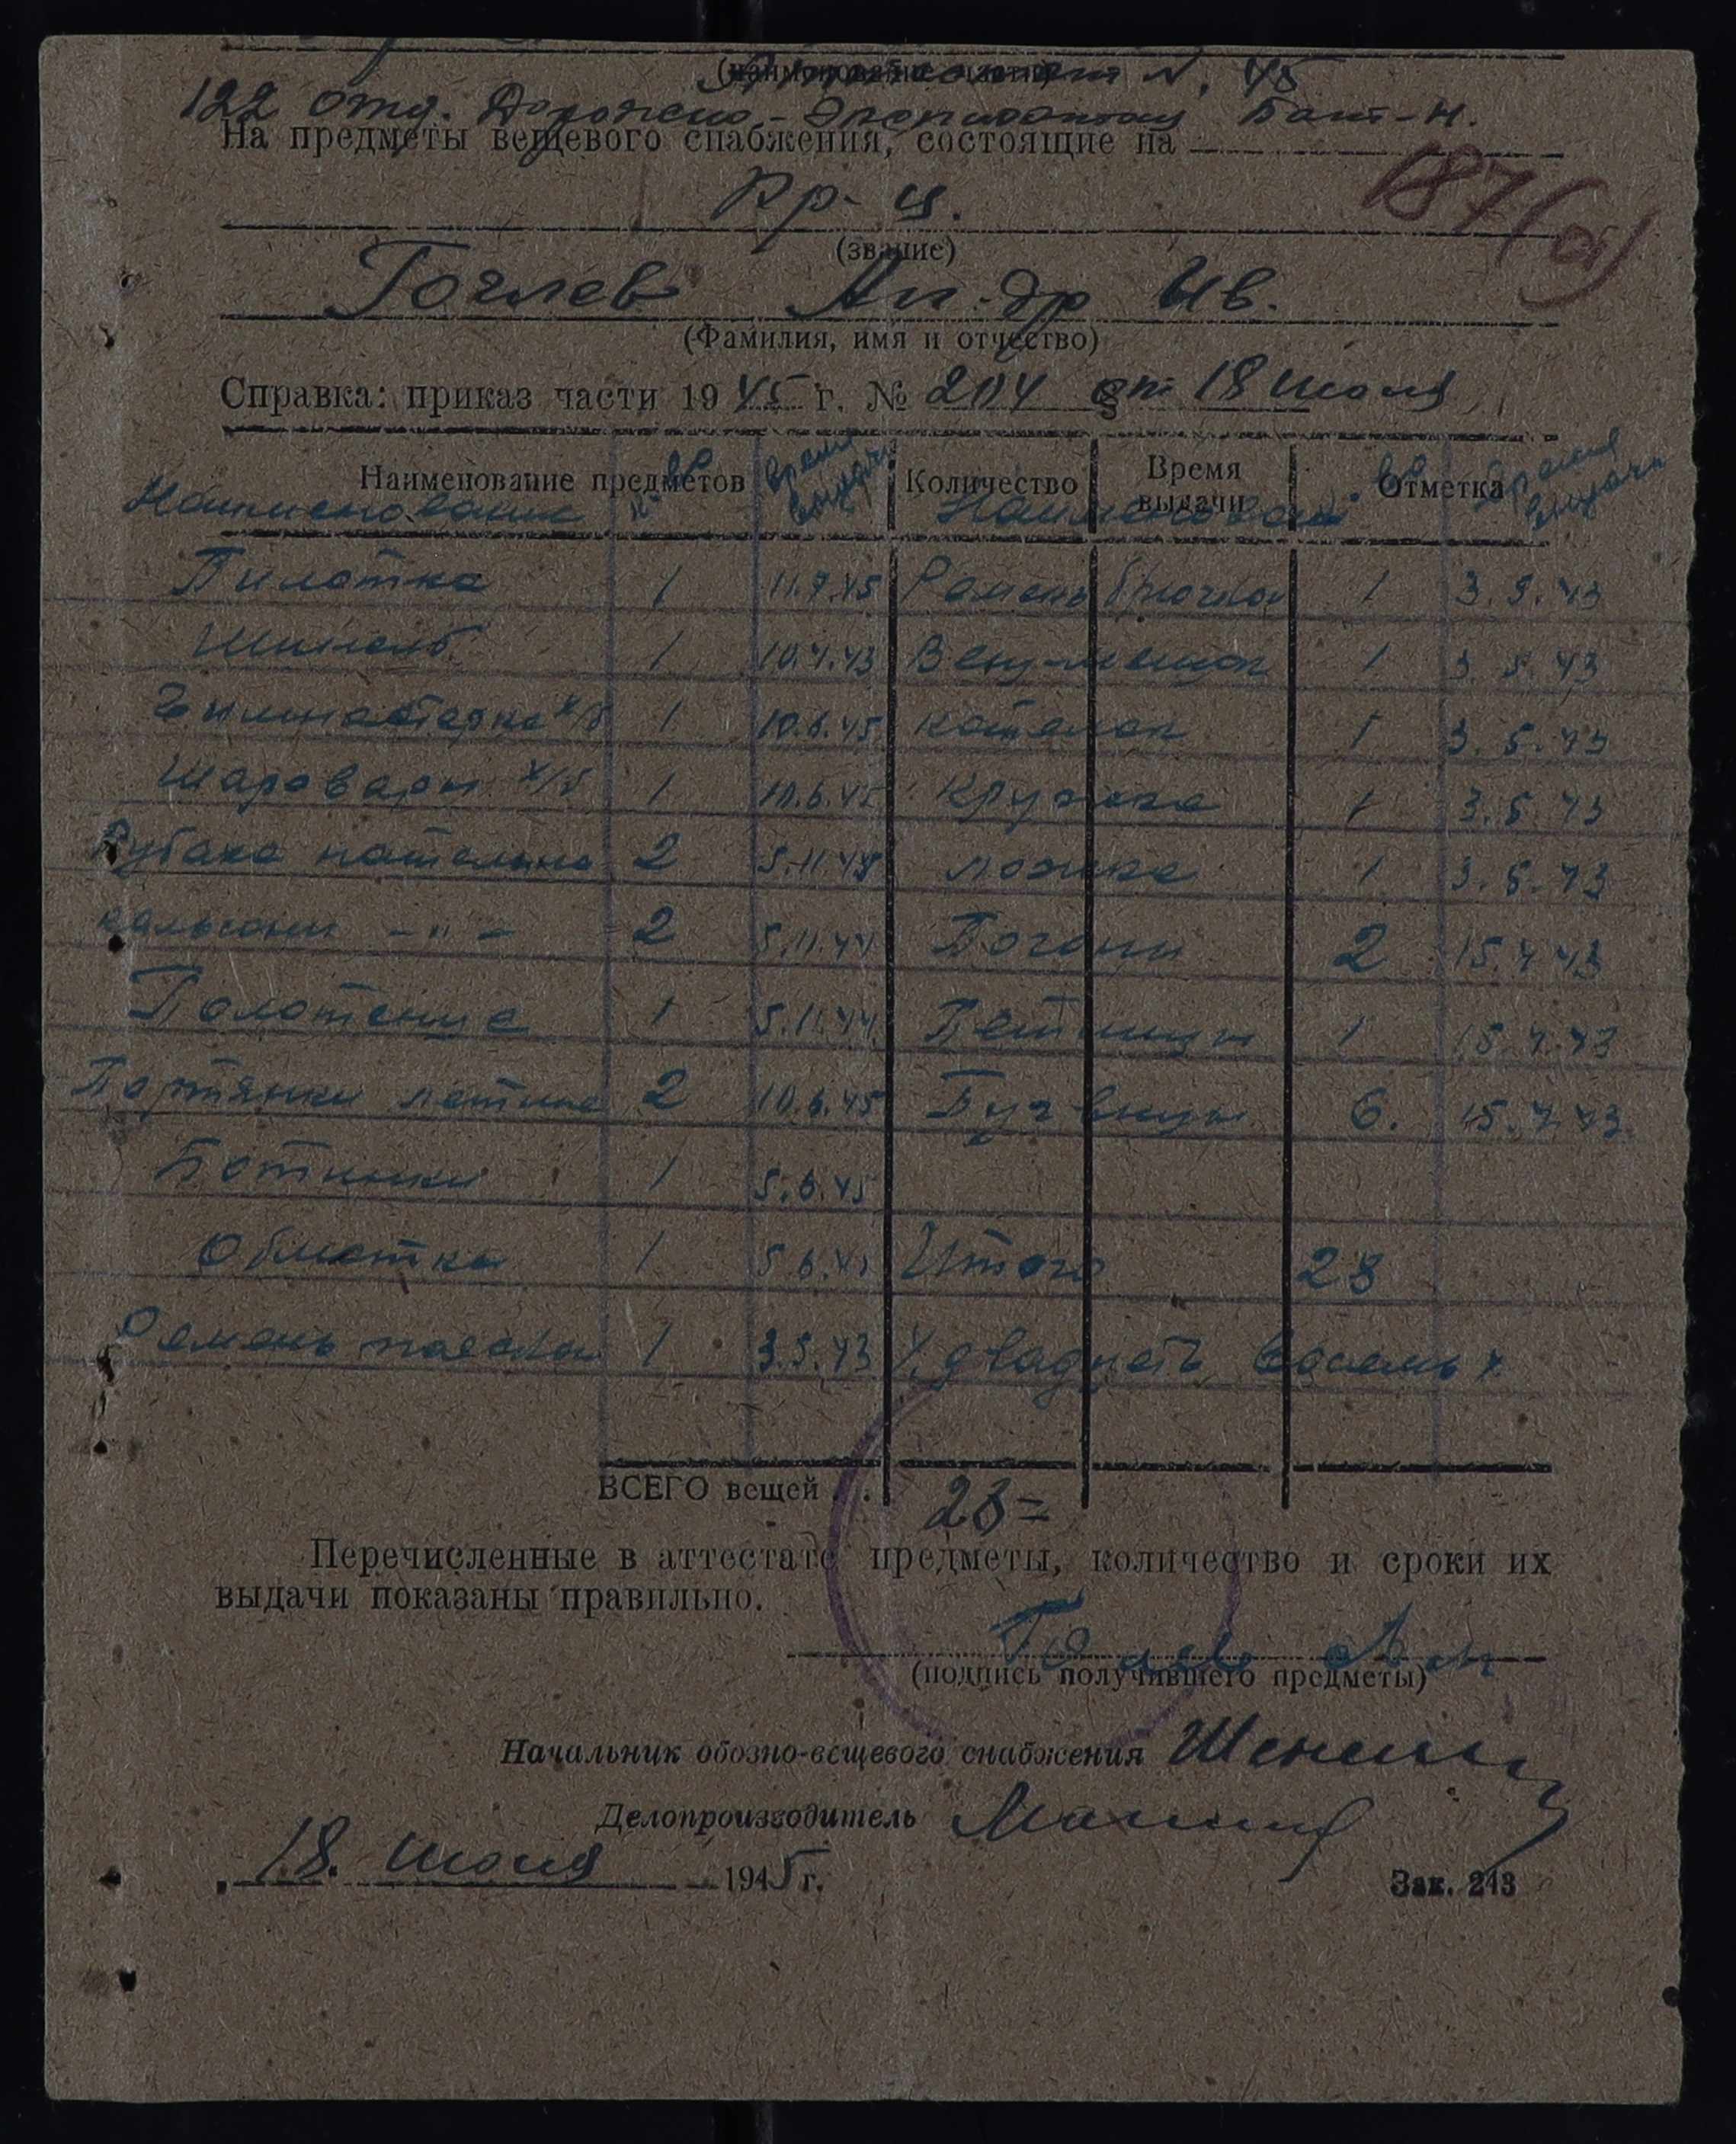 (наименование части) Аттестат N. 45
122 отд. Дорожно-Эксплоатац Бат-н.
На предметы вещевого снабжения, состоящие на
187(об)
кр-ц.
(звание)
Гочлев Ал-др Ив.
(Фамилия, имя и отчество)
Справка: приказ части 1945 г. № 204 от 18 июля
Наименование предметов Количество Время выдачи Отметка
Наименование к-во время выдачи Наименован к-во время выдачи
Пилотка 1 11.7.45 Ремень брючной 1 3.5.43
Шинель 1 10.4.43 Вещ-мешок 1 3.5.43
Гимнастерка х/б 1 10.6.45 котелок 1 3.5.43
Шаровары х/б 1 10.6.45 кружка 1 3.5.43
Рубаха нательна 2 5.11.44 ложка 1 3.5.43
кальсоны -"- 2 5.11.44 Погоны 2 15.4.43
Полотенце 1 5.11.44 Петлицы 1 15.4.43
Портянки летние 2 10.6.45 Пуговицы 6. 15.4.43
Ботинки 1 5.6.45
Обмотки 1 5.6.45 Итого 28
Ремень поясной 1 3.5.43 х двадцать восемь х
ВСЕГО вещей . . 28=
Перечисленные в аттестате предметы, количество и сроки их
выдачи показаны правильно.
(подпись получившего предметы)
Начальник обозно-вещевого снабжения
Делопроизводитель
„18. июля 1945 г.
Зак. 243